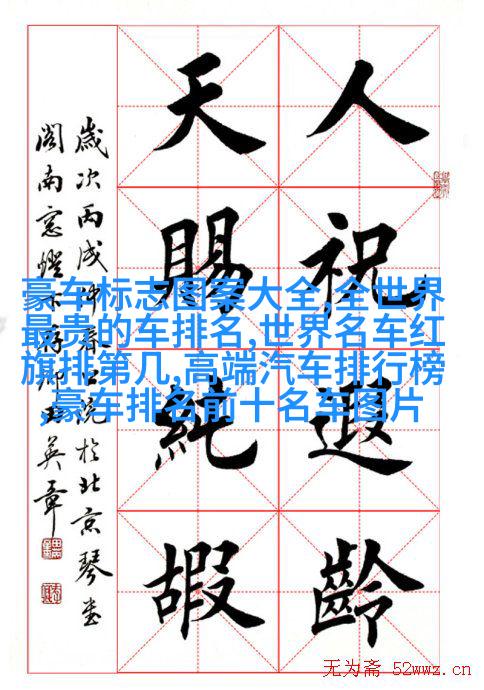 人祝遐齡
天賜純嘏
歲次丙戌仲春院於北京琴堂
閣南窓燈下田英章
豪车标志图案大全,全世界
最贵的车排名,世界名车红
旗排第几,高端汽车排行榜
,豪车排名前十名车图片
无为斋 52wwz.cn